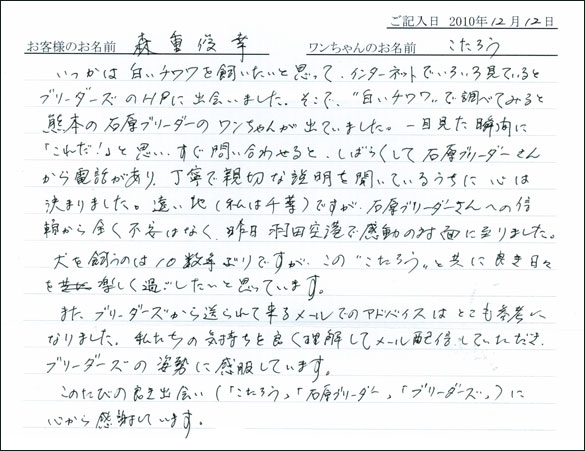 ご記入日 2010年12月12日
お客様のお名前 森重俊幸 ワンちゃんのお名前 こたろう
いつかは白いチワワを飼いたいと思って、インターネットでいろいろ見ていると
ブリーダーズのHPに出会いました。そこで、"白いチワワ"で調べてみると
熊本の石原ブリーダーのワンちゃんが出ていました。一目見た瞬間に
「これだ!」と思い、すぐ問い合わせると、しばらくして石原ブリーダーさん
から電話があり、丁寧で親切な説明を聞いているうちに心は
決まりました。遠い地(私は千葉)ですが、石原ブリーダーさんへの信
頼から全く不安はなく、昨日羽田空港で感動の対面に至りました。
犬を飼うのは10数年ぶりですが、この"こたろう"と共に良き日々
を楽しく過ごしたいと思っています。
また、ブリーダーズから送られて来るメールでのアドバイスはとても参考に
なりました。私たちの気持ちを良く理解してメール配信していただき、
ブリーダーズの姿勢に感服しています。
このたびの良き出会い(「こたろう」「石原ブリーダー」「ブリーダーズ」)に
心から感謝しています。